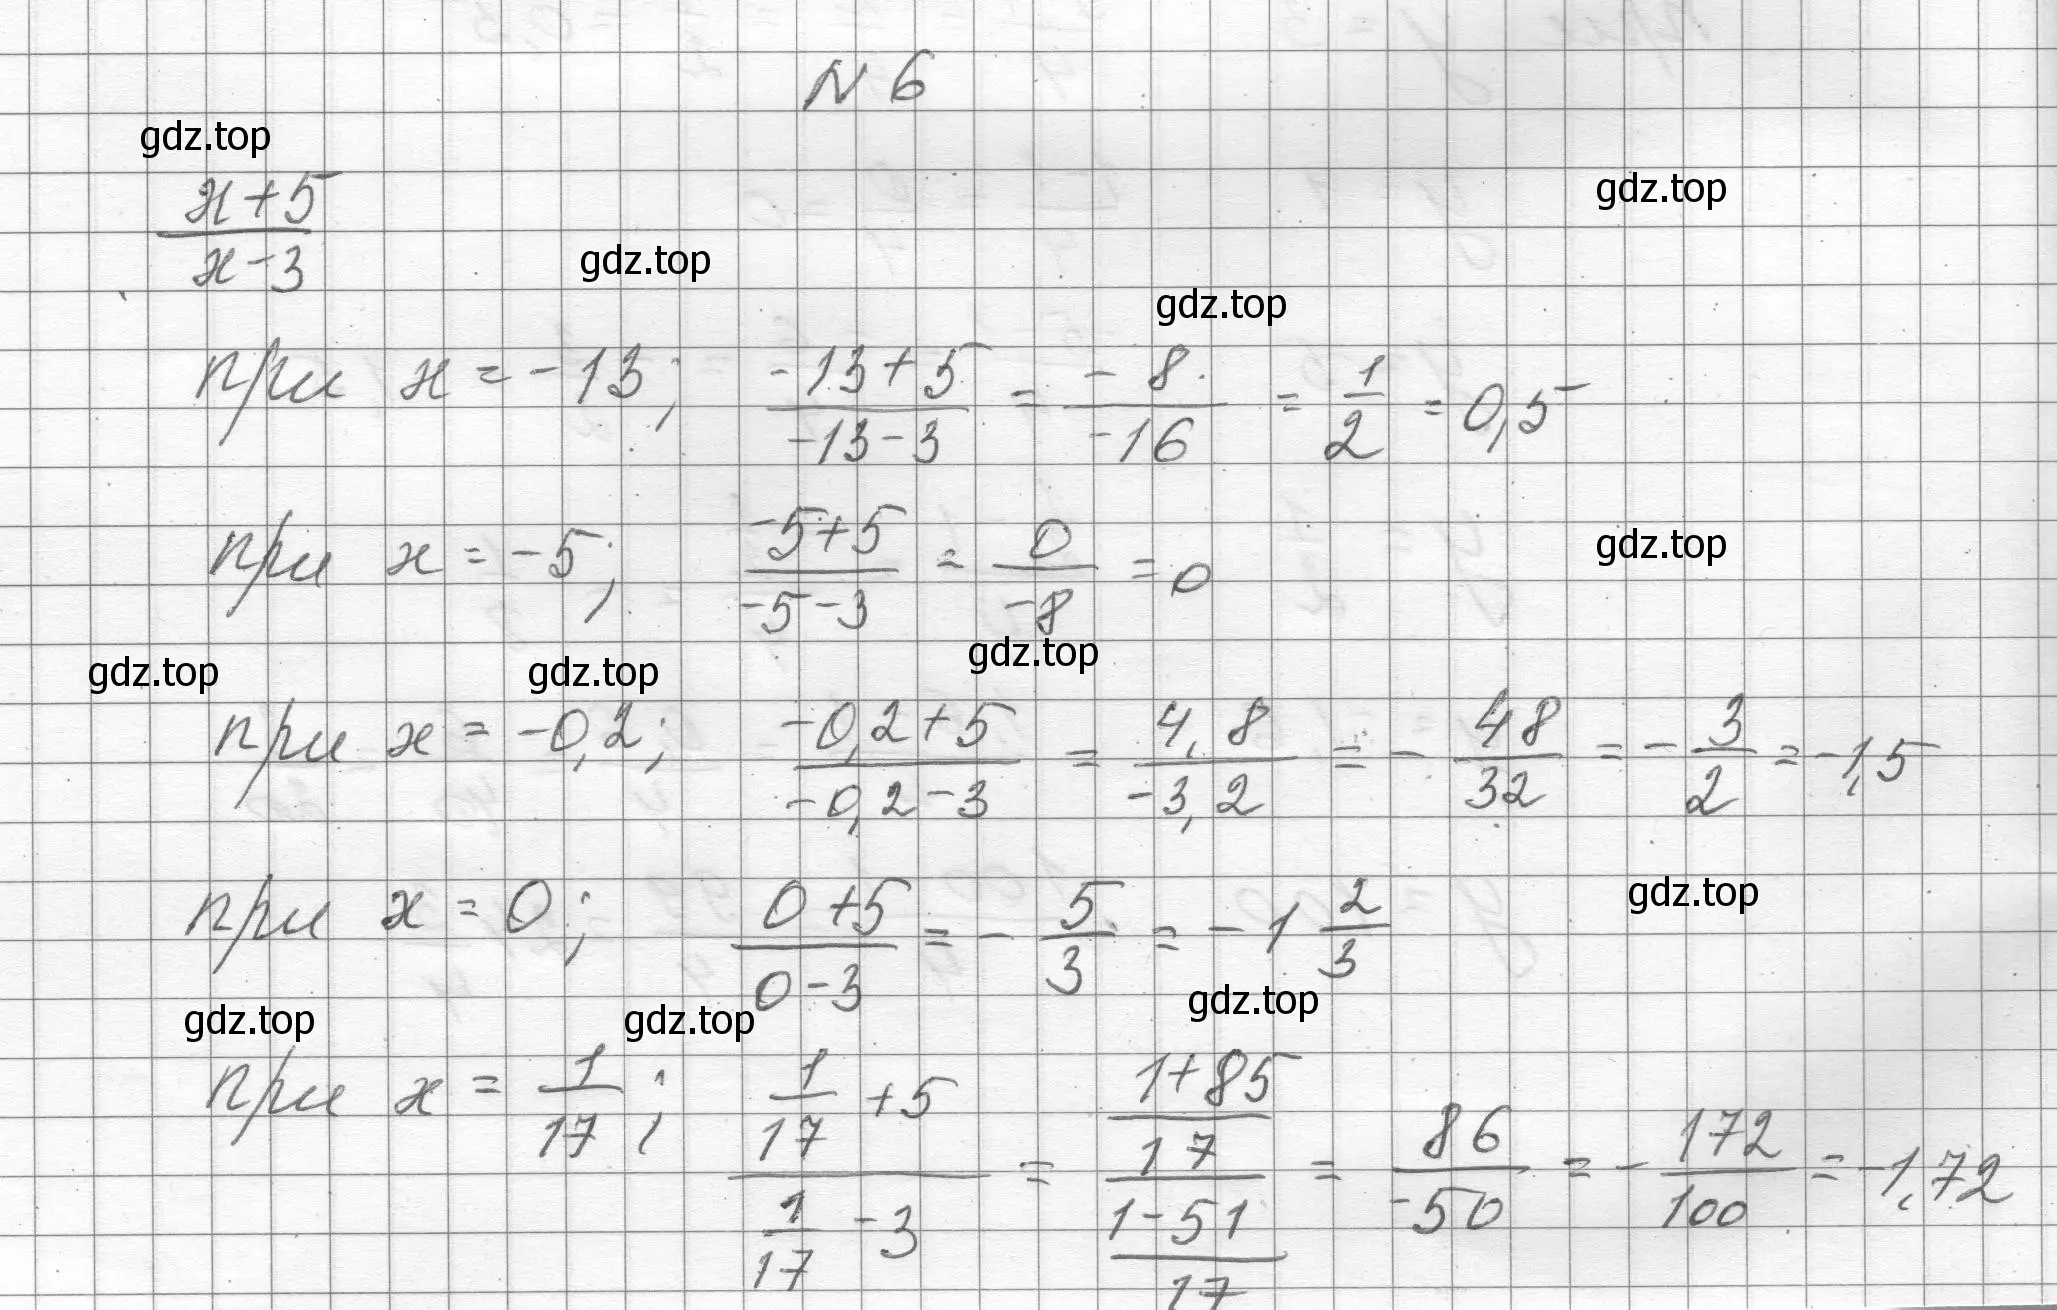 N 6
gdz.top
gdz.top
x+5
x-3
gdz.top
gdz.top
при x=-13; -13+5/-13-3 = -8/-16 = 1/2 = 0,5
gdz.top
при x=-5; -5+5/-5-3 = 0/-8 = 0
gdz.top gdz.top gdz.top
при x=-0,2; -0,2+5/-0,2-3 = 4,8/-3,2 = -48/32 = -3/2 = -1,5
gdz.top
при x=0; 0+5/0-3 = -5/3 = -1 2/3
gdz.top gdz.top gdz.top
при x=1/17; (1/17 +5)/(1/17 -3) = (1+85/17)/(1-51/17) = 86/-50 = -172/100 = -1,72